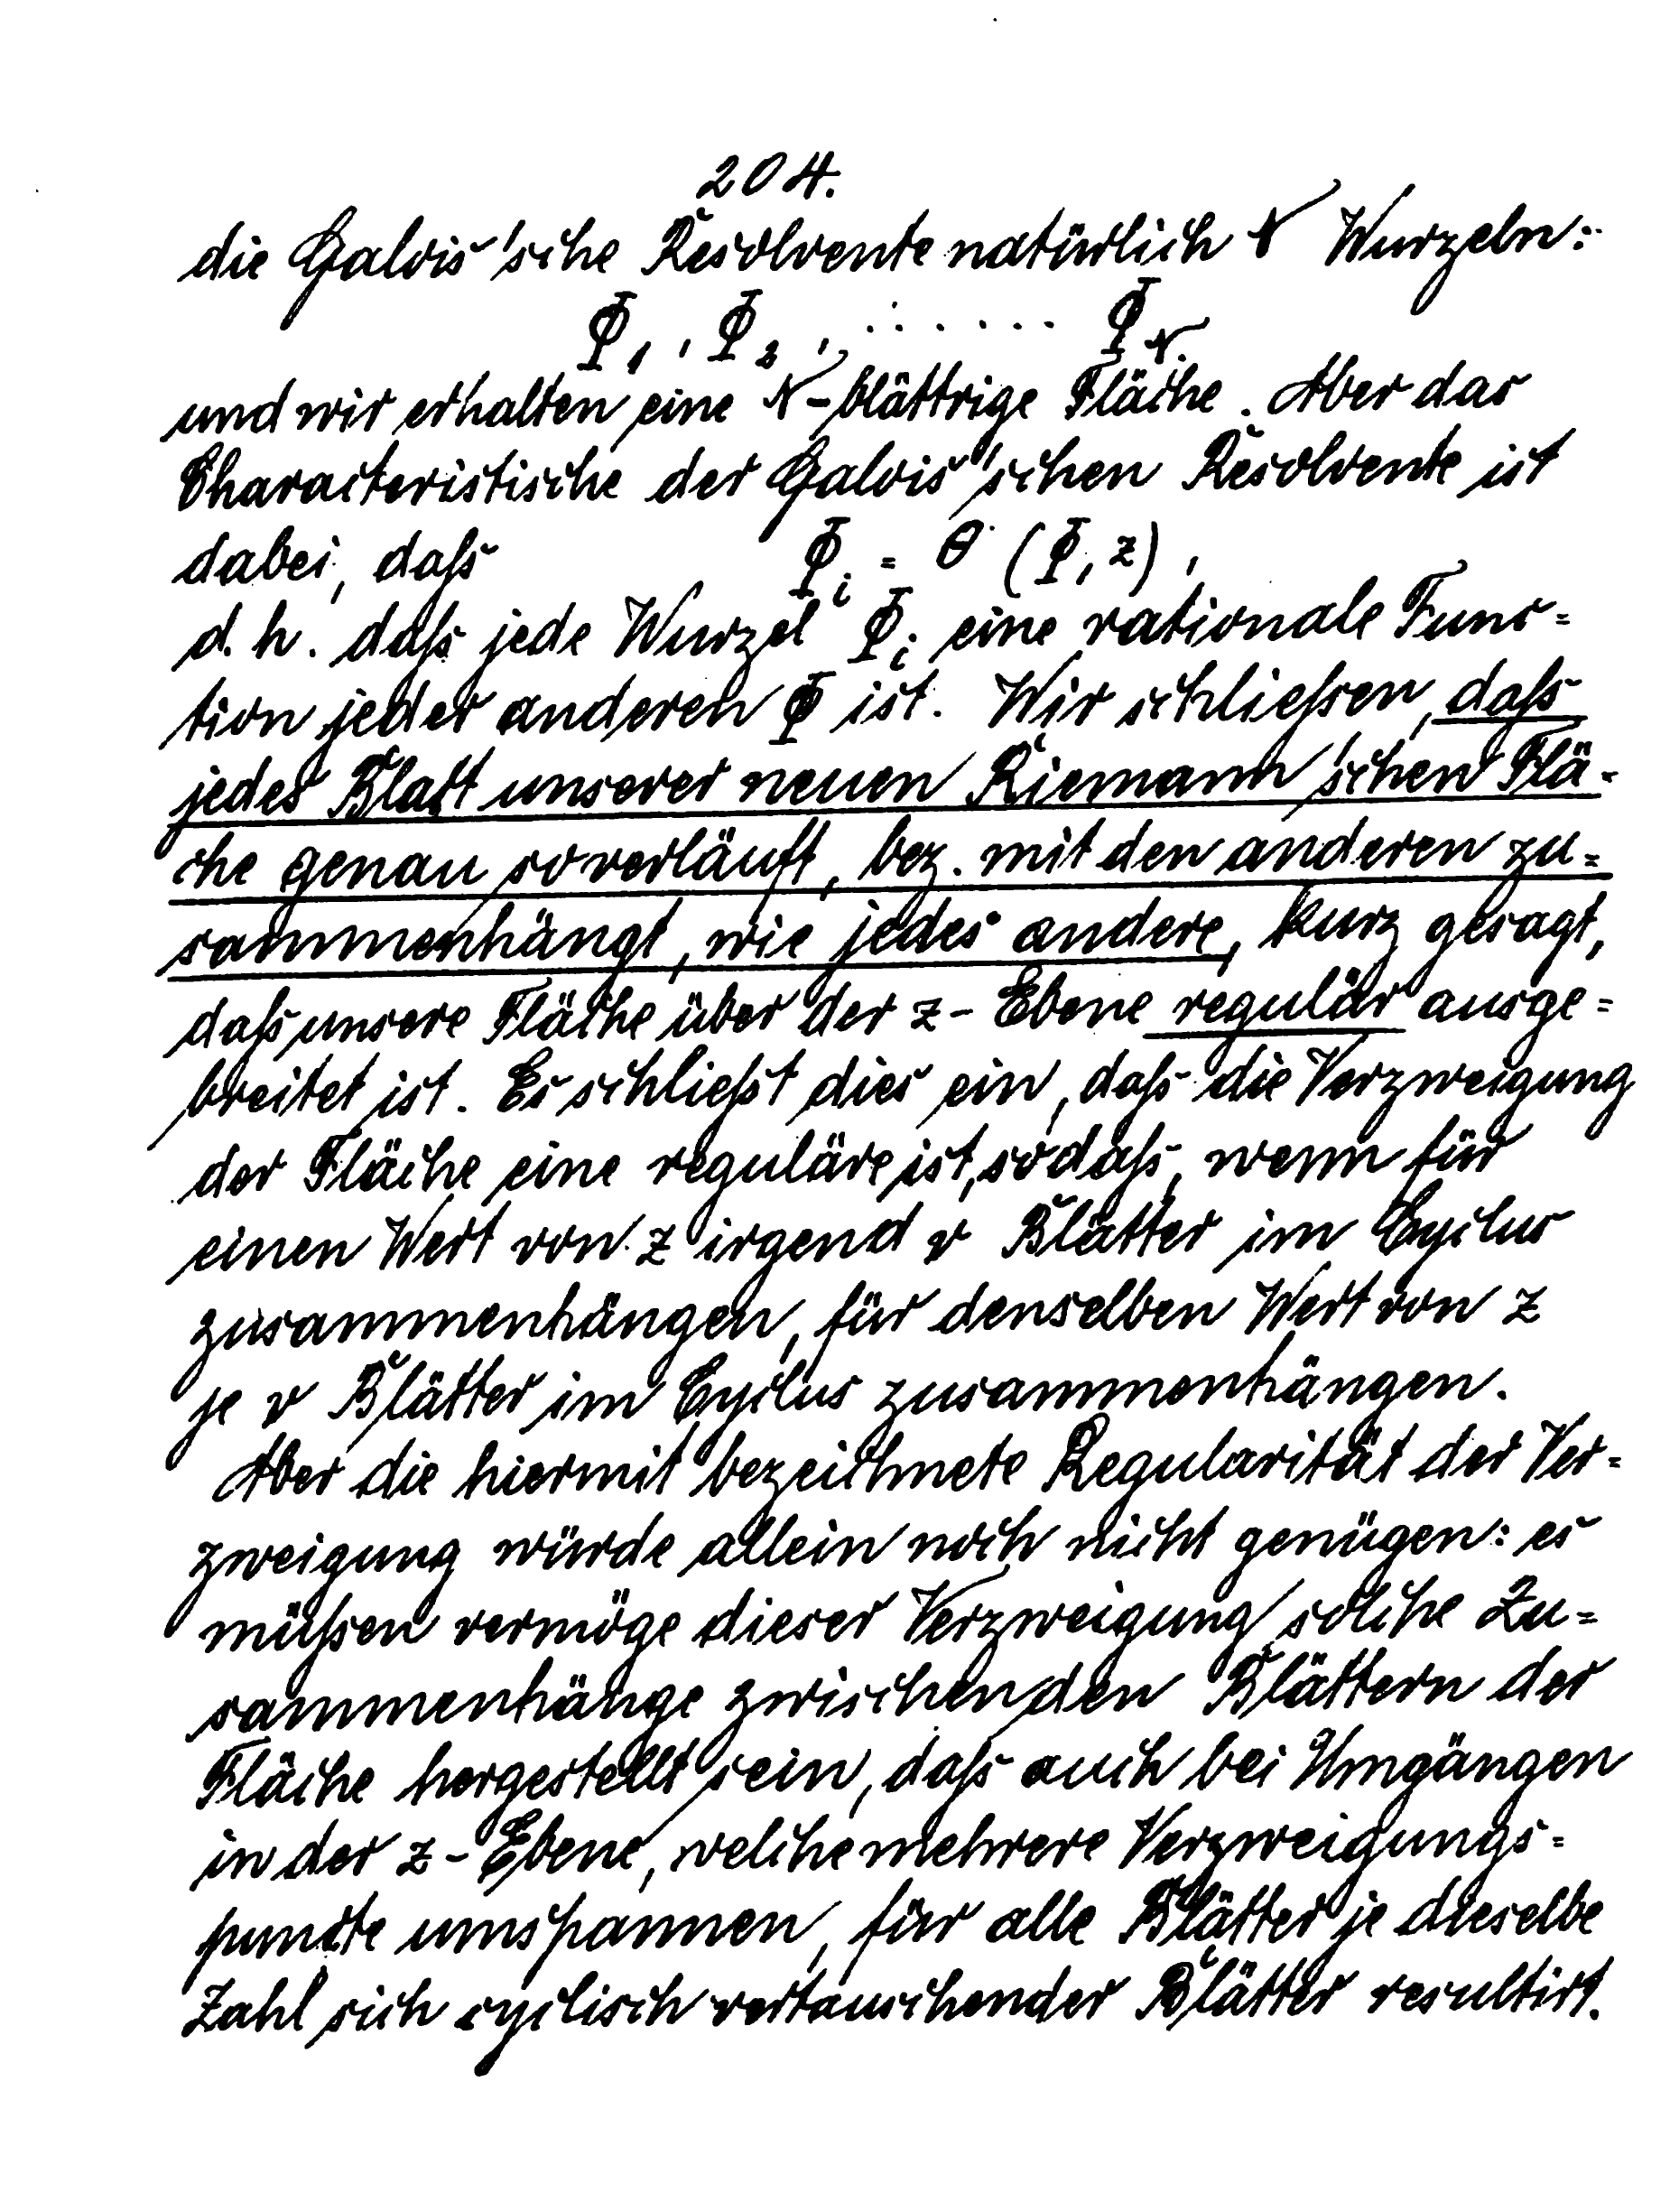 204.
die Galois'sche Resolvente natürlich N Wurzeln:
Φ₁, Φ₂, ....... Φ_N.
und wir erhalten eine N-blättrige Fläche. Aber das
Characteristische der Galois'schen Resolvente ist
dabei, daſs Φ_i = θ (Φ, z),
d. h. daſs jede Wurzel Φ_i eine rationale Func=
tion jeder anderen Φ ist. Wir schlieſsen, daſs
jedes Blatt unserer neuen Riemann'schen Flä-
che genau so verläuft, bez. mit den anderen zu=
sammenhängt, wie jedes andere, kurz gesagt,
daſs unsere Fläche über der z-Ebene regulär ausge=
breitet ist. Es schlieſst dies ein, daſs die Verzweigung
der Fläche eine reguläre ist, sodaſs, wenn für
einen Wert von z irgend ν Blätter im Cyclus
zusammenhängen, für denselben Wert von z
je ν Blätter im Cyclus zusammenhängen.
Aber die hiermit bezeichnete Regularität der Ver=
zweigung würde allein noch nicht genügen: es
müſsen vermöge dieser Verzweigung solche Zu=
sammenhänge zwischen den Blättern der
Fläche hergestellt sein, daſs auch bei Umgängen
in der z-Ebene, welche mehrere Verzweigungs=
puncte umspannen, für alle Blätter je dieselbe
Zahl sich cyclisch vertauschender Blätter resultirt.